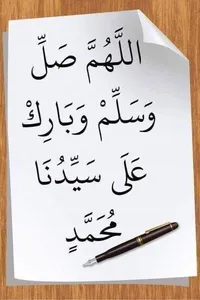 اللَّهُمَّ صَلِّ
وَسَلِّمْ وَبَارِكْ
عَلَى سَيِّدُنَا
مُحَمَّدٍ